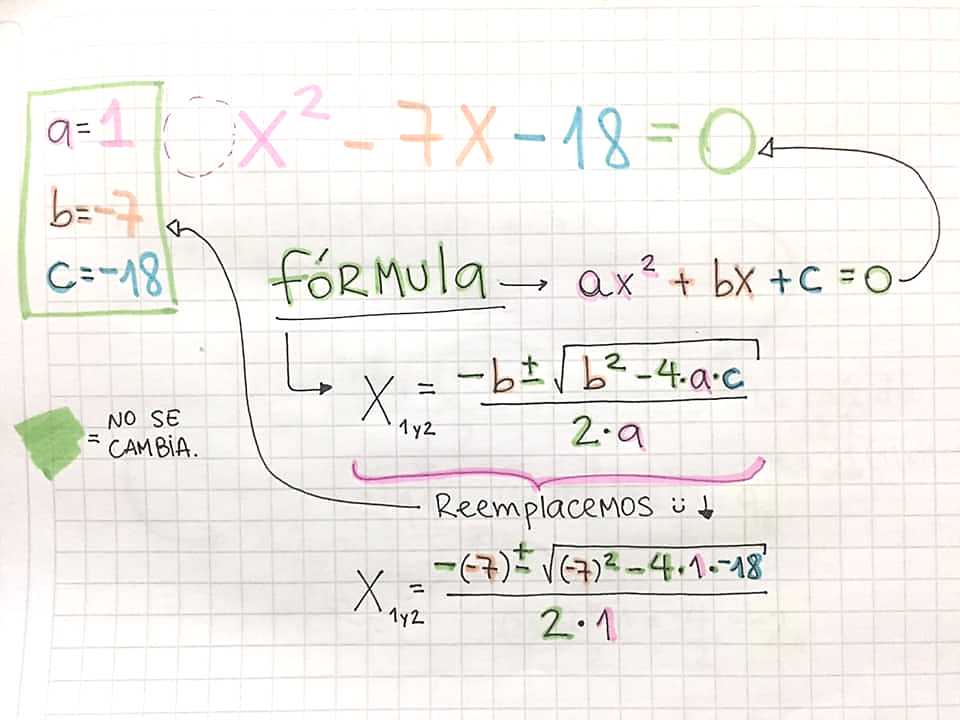 a = 1
b = -7
c = -18
x² - 7x - 18 = 0
fÓRMula → ax² + bx + c = 0
X₁y₂ = (-b ± √(b² - 4·a·c)) / (2·a)
= NO SE
CAMBiA.
ReemplaceMOS ü ↓
X₁y₂ = (-(-7) ± √((-7)² - 4·1·-18)) / (2·1)